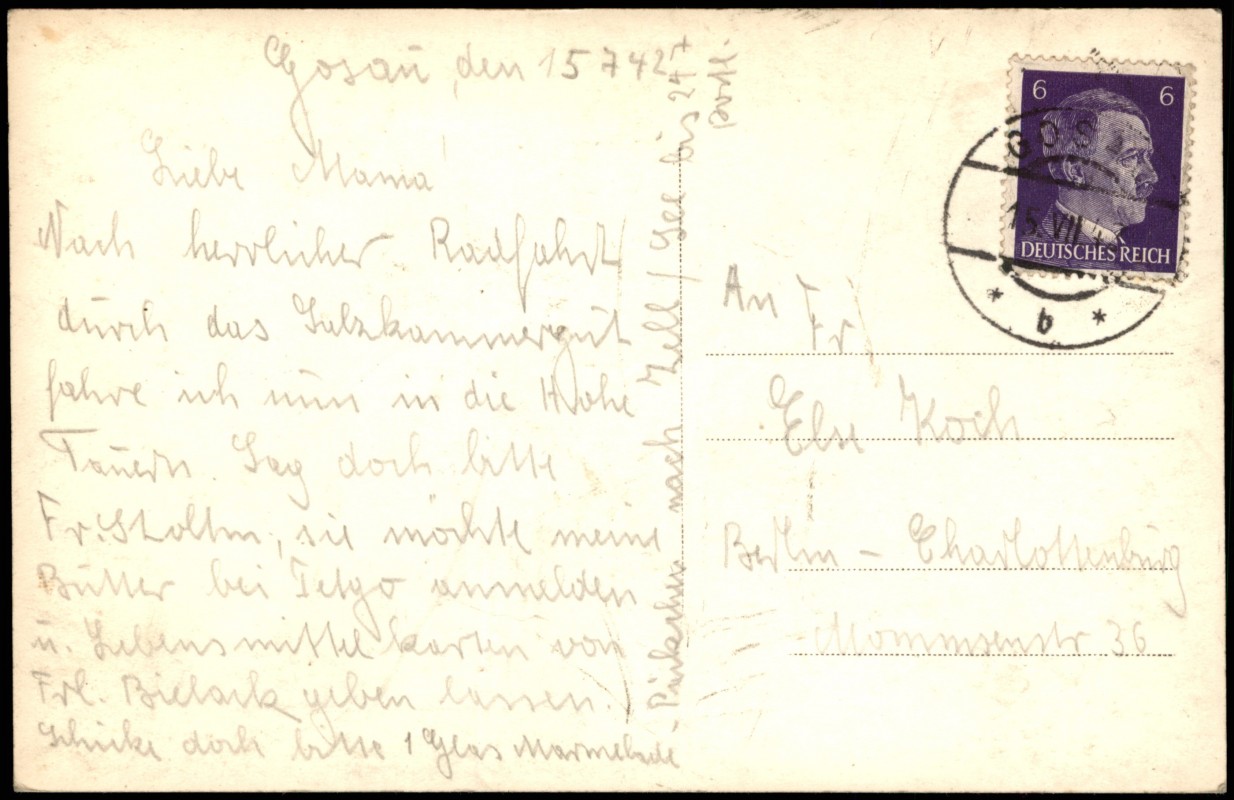 Gosau, den 15 7 42
Liebe Mama
Nach herrlicher Radfahrt
durch das Salzkammergut
fahre ich nun in die Hohe
Tauern. Sag doch bitte
Fr. , sie möchte meine
Butter bei anmelden
u. Lebensmittelkarten von
Frl. Bielack geben lassen.
Schicke doch bitte 1 Glas Marmelade
nach Zell / See bis 24
postl.
6 6
DEUTSCHES REICH
GOS
15. VII 42
b
An Fr
Else Koch
Berlin - Charlottenburg
Mommsenstr 36